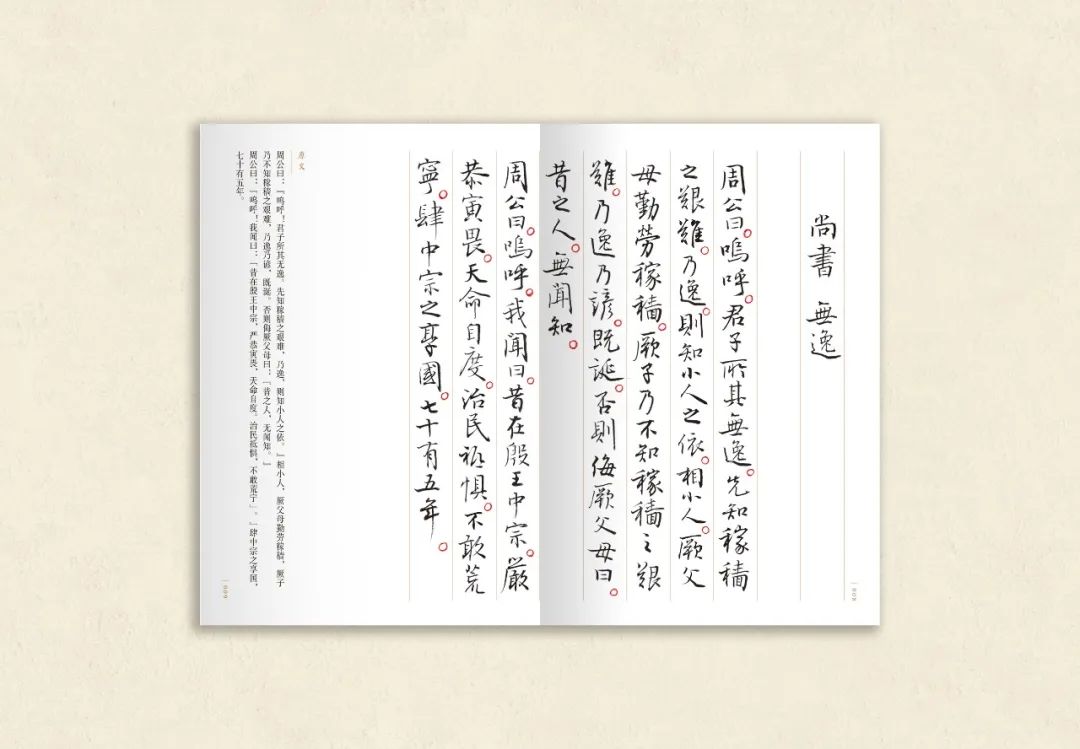 尚書 無逸
周公曰。嗚呼。君子所其無逸。先知稼穡
之艱難。乃逸。則知小人之依。相小人。厥父
母勤勞稼穡。厥子乃不知稼穡之艱
難。乃逸乃諺。既誕。否則侮厥父母曰。
昔之人。無聞知。
008
周公曰。嗚呼。我聞曰。昔在殷王中宗。嚴
恭寅畏。天命自度。治民祗惧。不敢荒
寧。肆中宗之享國。七十有五年。
原文
周公曰：『呜呼！君子所其无逸。先知稼穑之艰难，乃逸，则知小人之依。』相小人，厥父母勤劳稼穑，厥子
乃不知稼穑之艰难，乃逸乃谚，既诞。否则侮厥父母曰：「昔之人，无闻知。」
周公曰：『呜呼！我闻曰：「昔在殷王中宗，严恭寅畏，天命自度。治民祗惧，不敢荒宁」。』肆中宗之享国，
七十有五年。
009